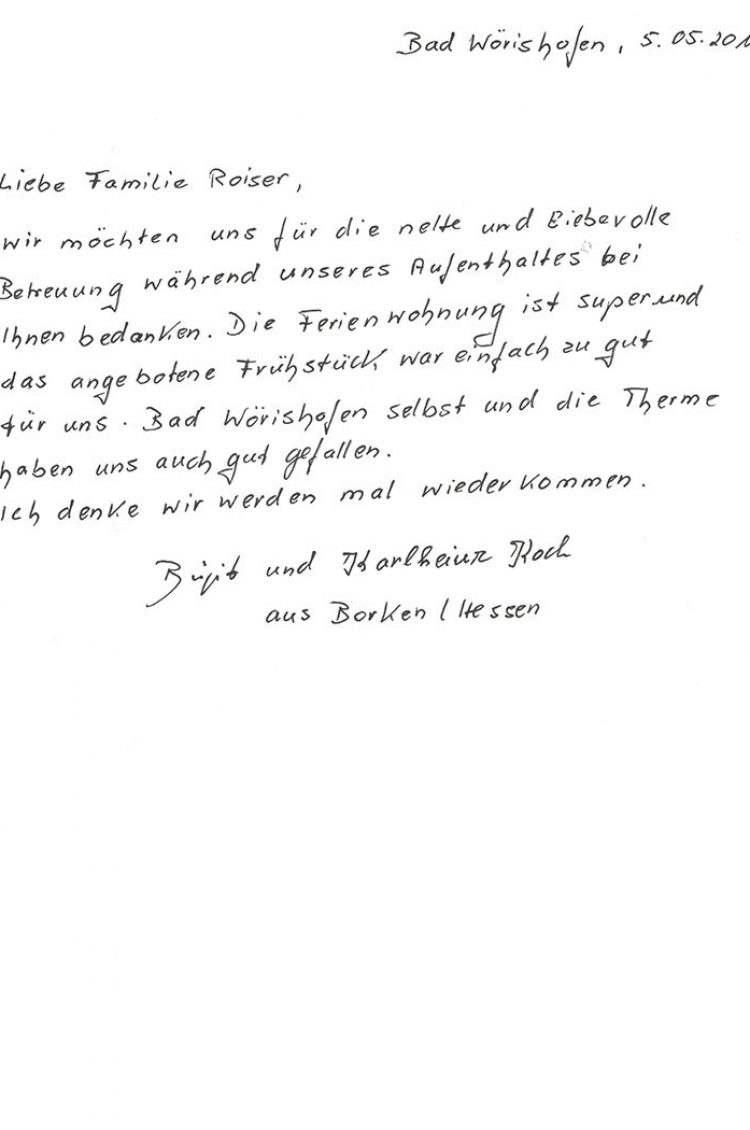 Bad Wörishofen, 5.05.201
Liebe Familie Roiser,
wir möchten uns für die nette und liebevolle
Betreuung während unseres Aufenthaltes bei
Ihnen bedanken. Die Ferienwohnung ist super und
das angebotene Frühstück war einfach zu gut
für uns. Bad Wörishofen selbst und die Therme
haben uns auch gut gefallen.
Ich denke wir werden mal wieder kommen.
Birgit und Karlheinz Koch
aus Borken / Hessen